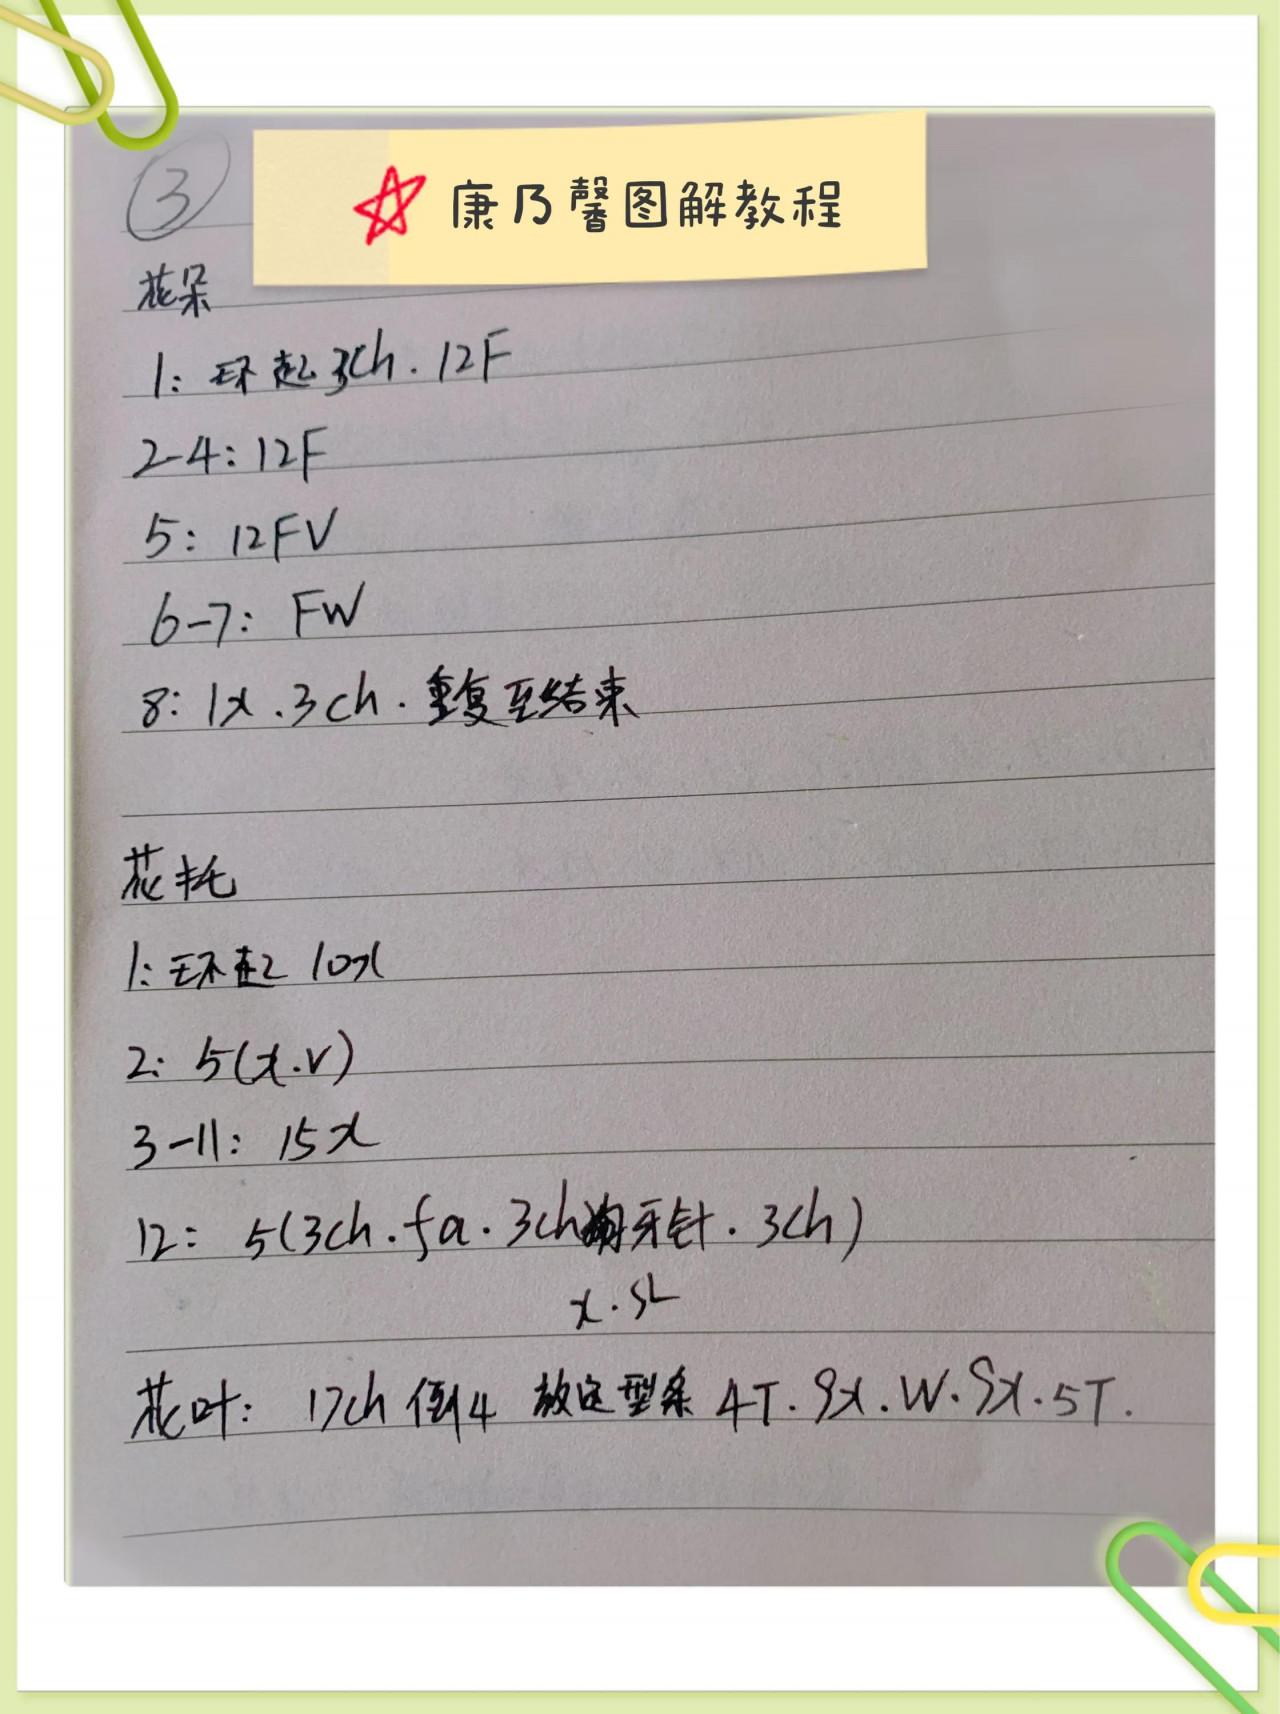 ③
康乃馨图解教程
花朵
1: 环起3ch. 12F
2-4: 12F
5: 12FV
6-7: FW
8: 1x.3ch.重复至结束
花托
1: 环起 10x
2: 5(x.v)
3-11: 15x
12: 5(3ch.fa.3ch 牙针.3ch)
x.SL
花叶: 17ch 倒4 放定型条 4T.9x.W.9x.5T.